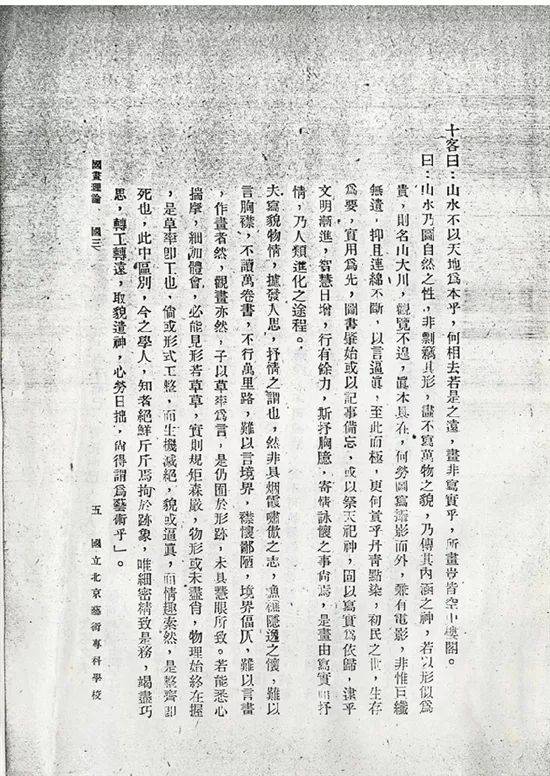 十客曰：山水不以天地爲本乎，何相去若是之遠，畫非寫實乎，所畫豈皆空中樓閣。
曰：山水乃圖自然之性，非剽竊其形，畫不寫萬物之貌，乃傳其內涵之神，若以形似爲
貴，則名山大川，觀覽不遑，眞本具在，何勞圖寫攝影而外，兼有電影，非惟巨纖
無遺，抑且連綿不斷，以言逼眞，至此而極，更何貴乎丹靑點染，初民之世，生存
爲要，實用爲先，圖書肇始或以記事備忘，或以祭天祀神，固以寫實爲依歸，逮乎
文明漸進，智慧日增，行有餘力，斯抒胸臆，寄情詠懷之事尙焉，是畫由寫實而抒
情，乃人類進化之途程。
夫寫貌物情，攄發人思，抒情之謂也，然非具烟霞嘯傲之志，漁樵隱逸之懷，難以
言胸襟，不讀萬卷書，不行萬里路，難以言境界，襟懷鄙陋，境界傴仄，難以言畫
，作畫者然，觀畫亦然，子以草率爲言，是仍囿於形跡，未具慧眼所致。若能悉心
揣摩，細加體會，必能見形若草草，實則規矩森嚴，物形或未盡肖，物理始終在握
，是草率卽工也，倘或形式工整，而生機滅絕，貌或逼眞，而情趣索然，是整齊卽
死也，此中區別，今之學人，知者絕鮮斤斤焉拘於跡象，唯細密精致是務，竭盡巧
思，轉工轉遠，取貌遺神，心勞日拙，尙得謂爲藝術乎」。
國畫理論　國三　五　國立北京藝術專科學校